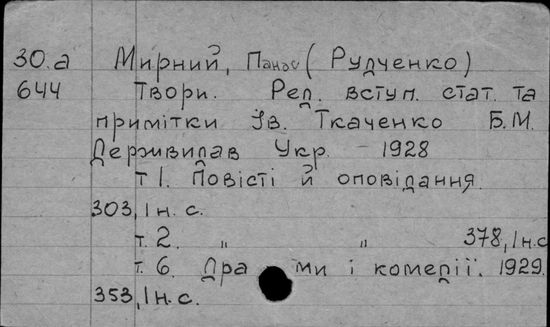 30.а Мирний, Панас (Рудченко)
644 Твори. Ред. вступ. стат. та
примітки Ів. Ткаченко Б.М.
Державидав Укр. - 1928
т 1. Повісті й оповідання.
303, Ін. с.
т. 2. " " 378, Ін.с
т. 6. Драми і комедії. 1929.
353, Ін.с.